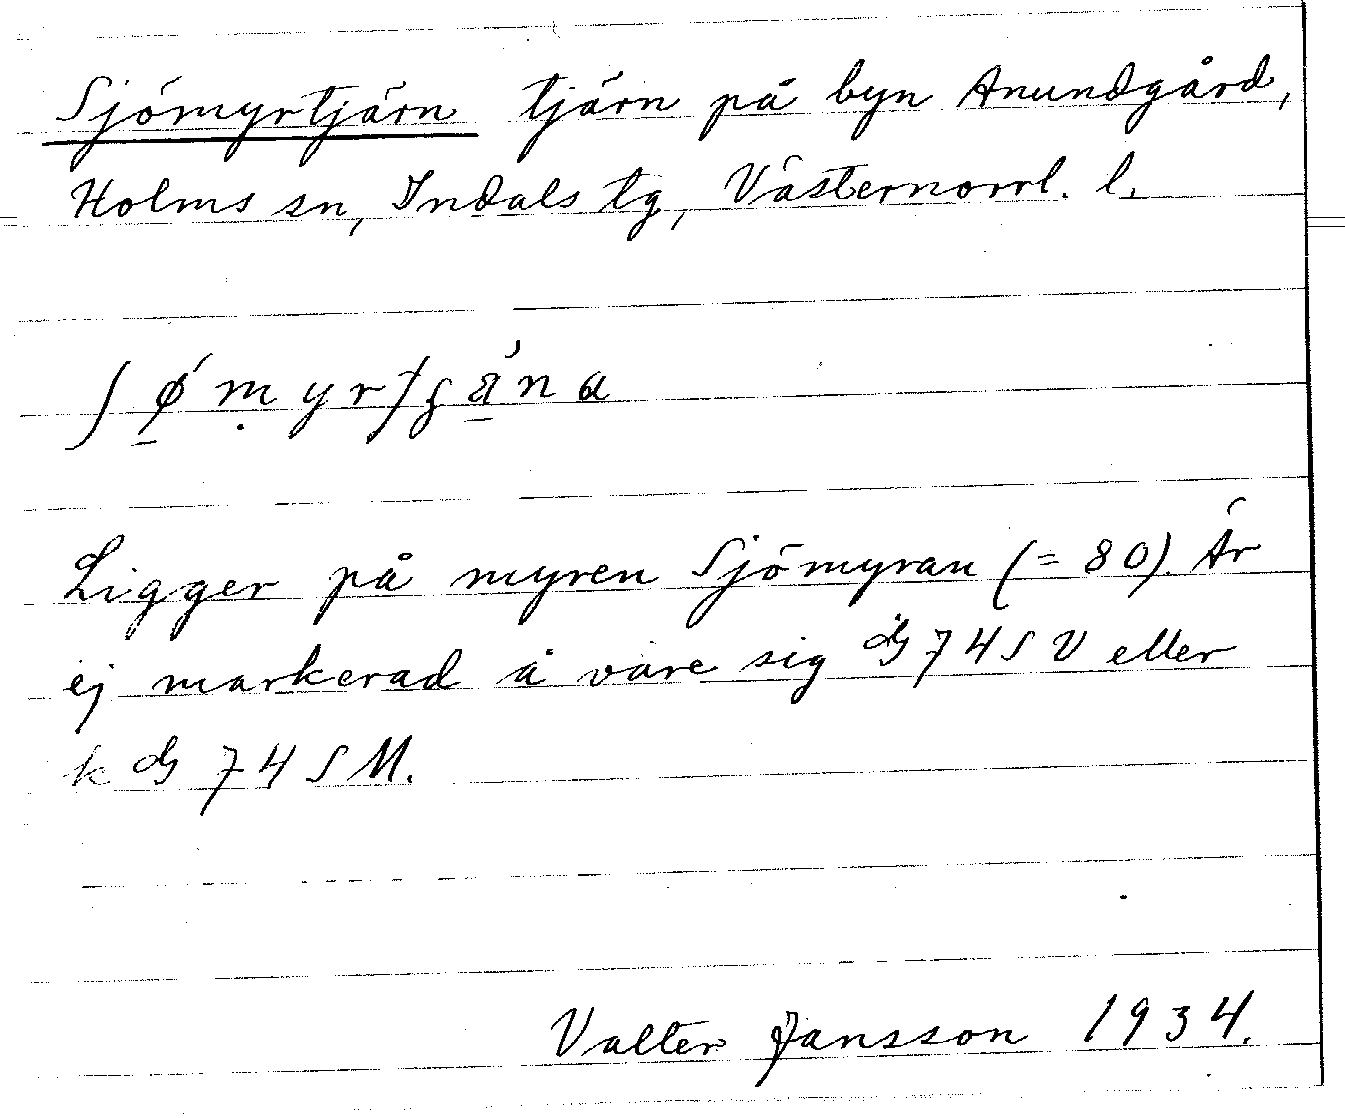 Sjömyrtjärn tjärn på byn Anundgård,
Holms sn, Indals tg, Västernorrl. l.
Ligger på myren Sjömyran (= 80). Är
ej markerad å vare sig 74 SV eller
k 74 SM.
Valter Jansson 1934.